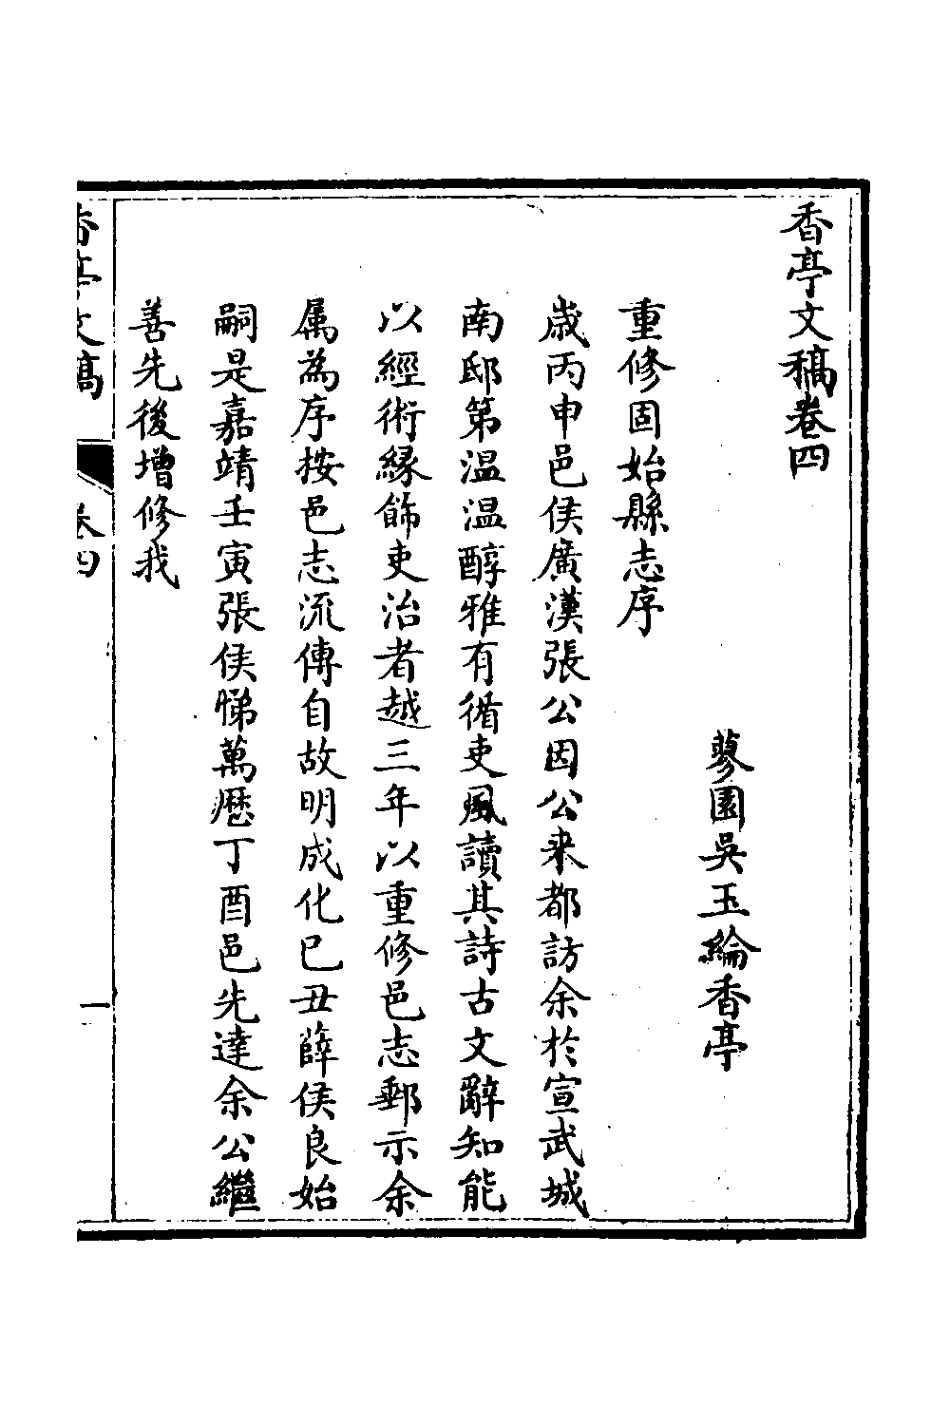 香亭文稿卷四
蓼園吳玉綸香亭
重修固始縣志序
歲丙申邑侯廣漢張公因公来都訪余於宣武城
南邸第温温醇雅有循吏風讀其詩古文辭知能
以經術緣飾吏治者越三年以重修邑志郵示余
属為序按邑志流傳自故明成化巳丑薛侯良始
嗣是嘉靖壬寅張侯悌萬厯丁酉邑先達余公繼
善先後增修我
香亭文稿 卷四 一